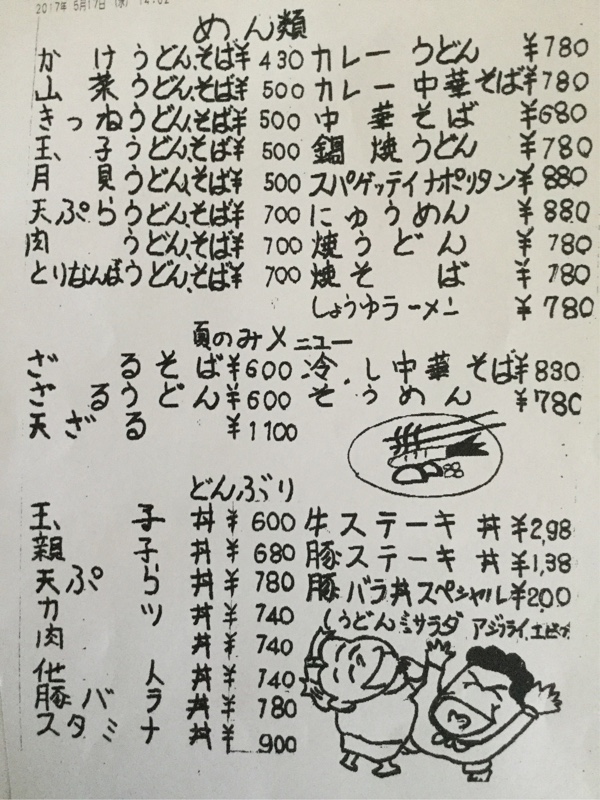 2017年 5月17日 (水) 14:02
めん類
かけうどん、そば¥430 カレーうどん ¥780
山菜うどん、そば¥500 カレー中華そば¥780
きつねうどん、そば¥500 中華そば ¥680
玉子うどん、そば¥500 鍋焼うどん ¥780
月見うどん、そば¥500 スパゲッテイナポリタン¥880
天ぷらうどん、そば¥700 にゅうめん ¥880
肉うどん、そば¥700 焼うどん ¥780
とりなんばうどん、そば¥700 焼そば ¥780
しょうゆラーメン ¥780
夏のみメニュー
ざるそば¥600 冷し中華そば¥830
ざるうどん¥600 そうめん ¥780
天ざる ¥1100
どんぶり
玉子丼 ¥600 牛ステーキ丼¥2,98
親子丼 ¥680 豚ステーキ丼¥1,38
天ぷら丼 ¥780 豚バラ丼スペシャル¥200
カツ丼 ¥740 (うどんミサラダ アジフライ、エビフ
肉丼 ¥740
他人丼 ¥740
豚バラ丼 ¥780
スタミナ丼 900